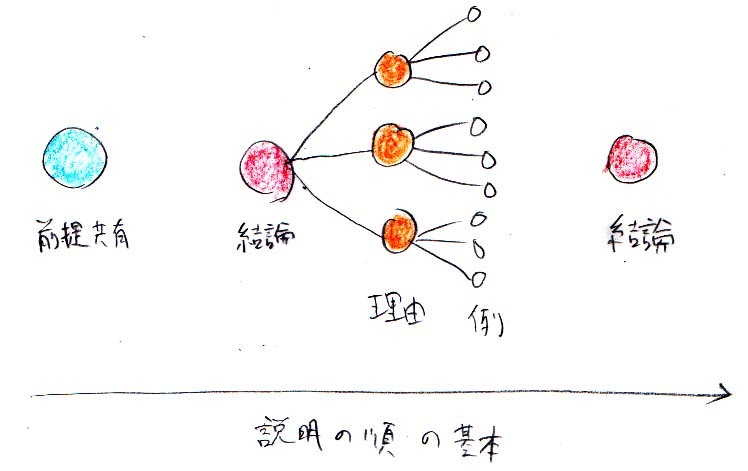 前提共有
結論
理由
例
結論
説明の順の基本